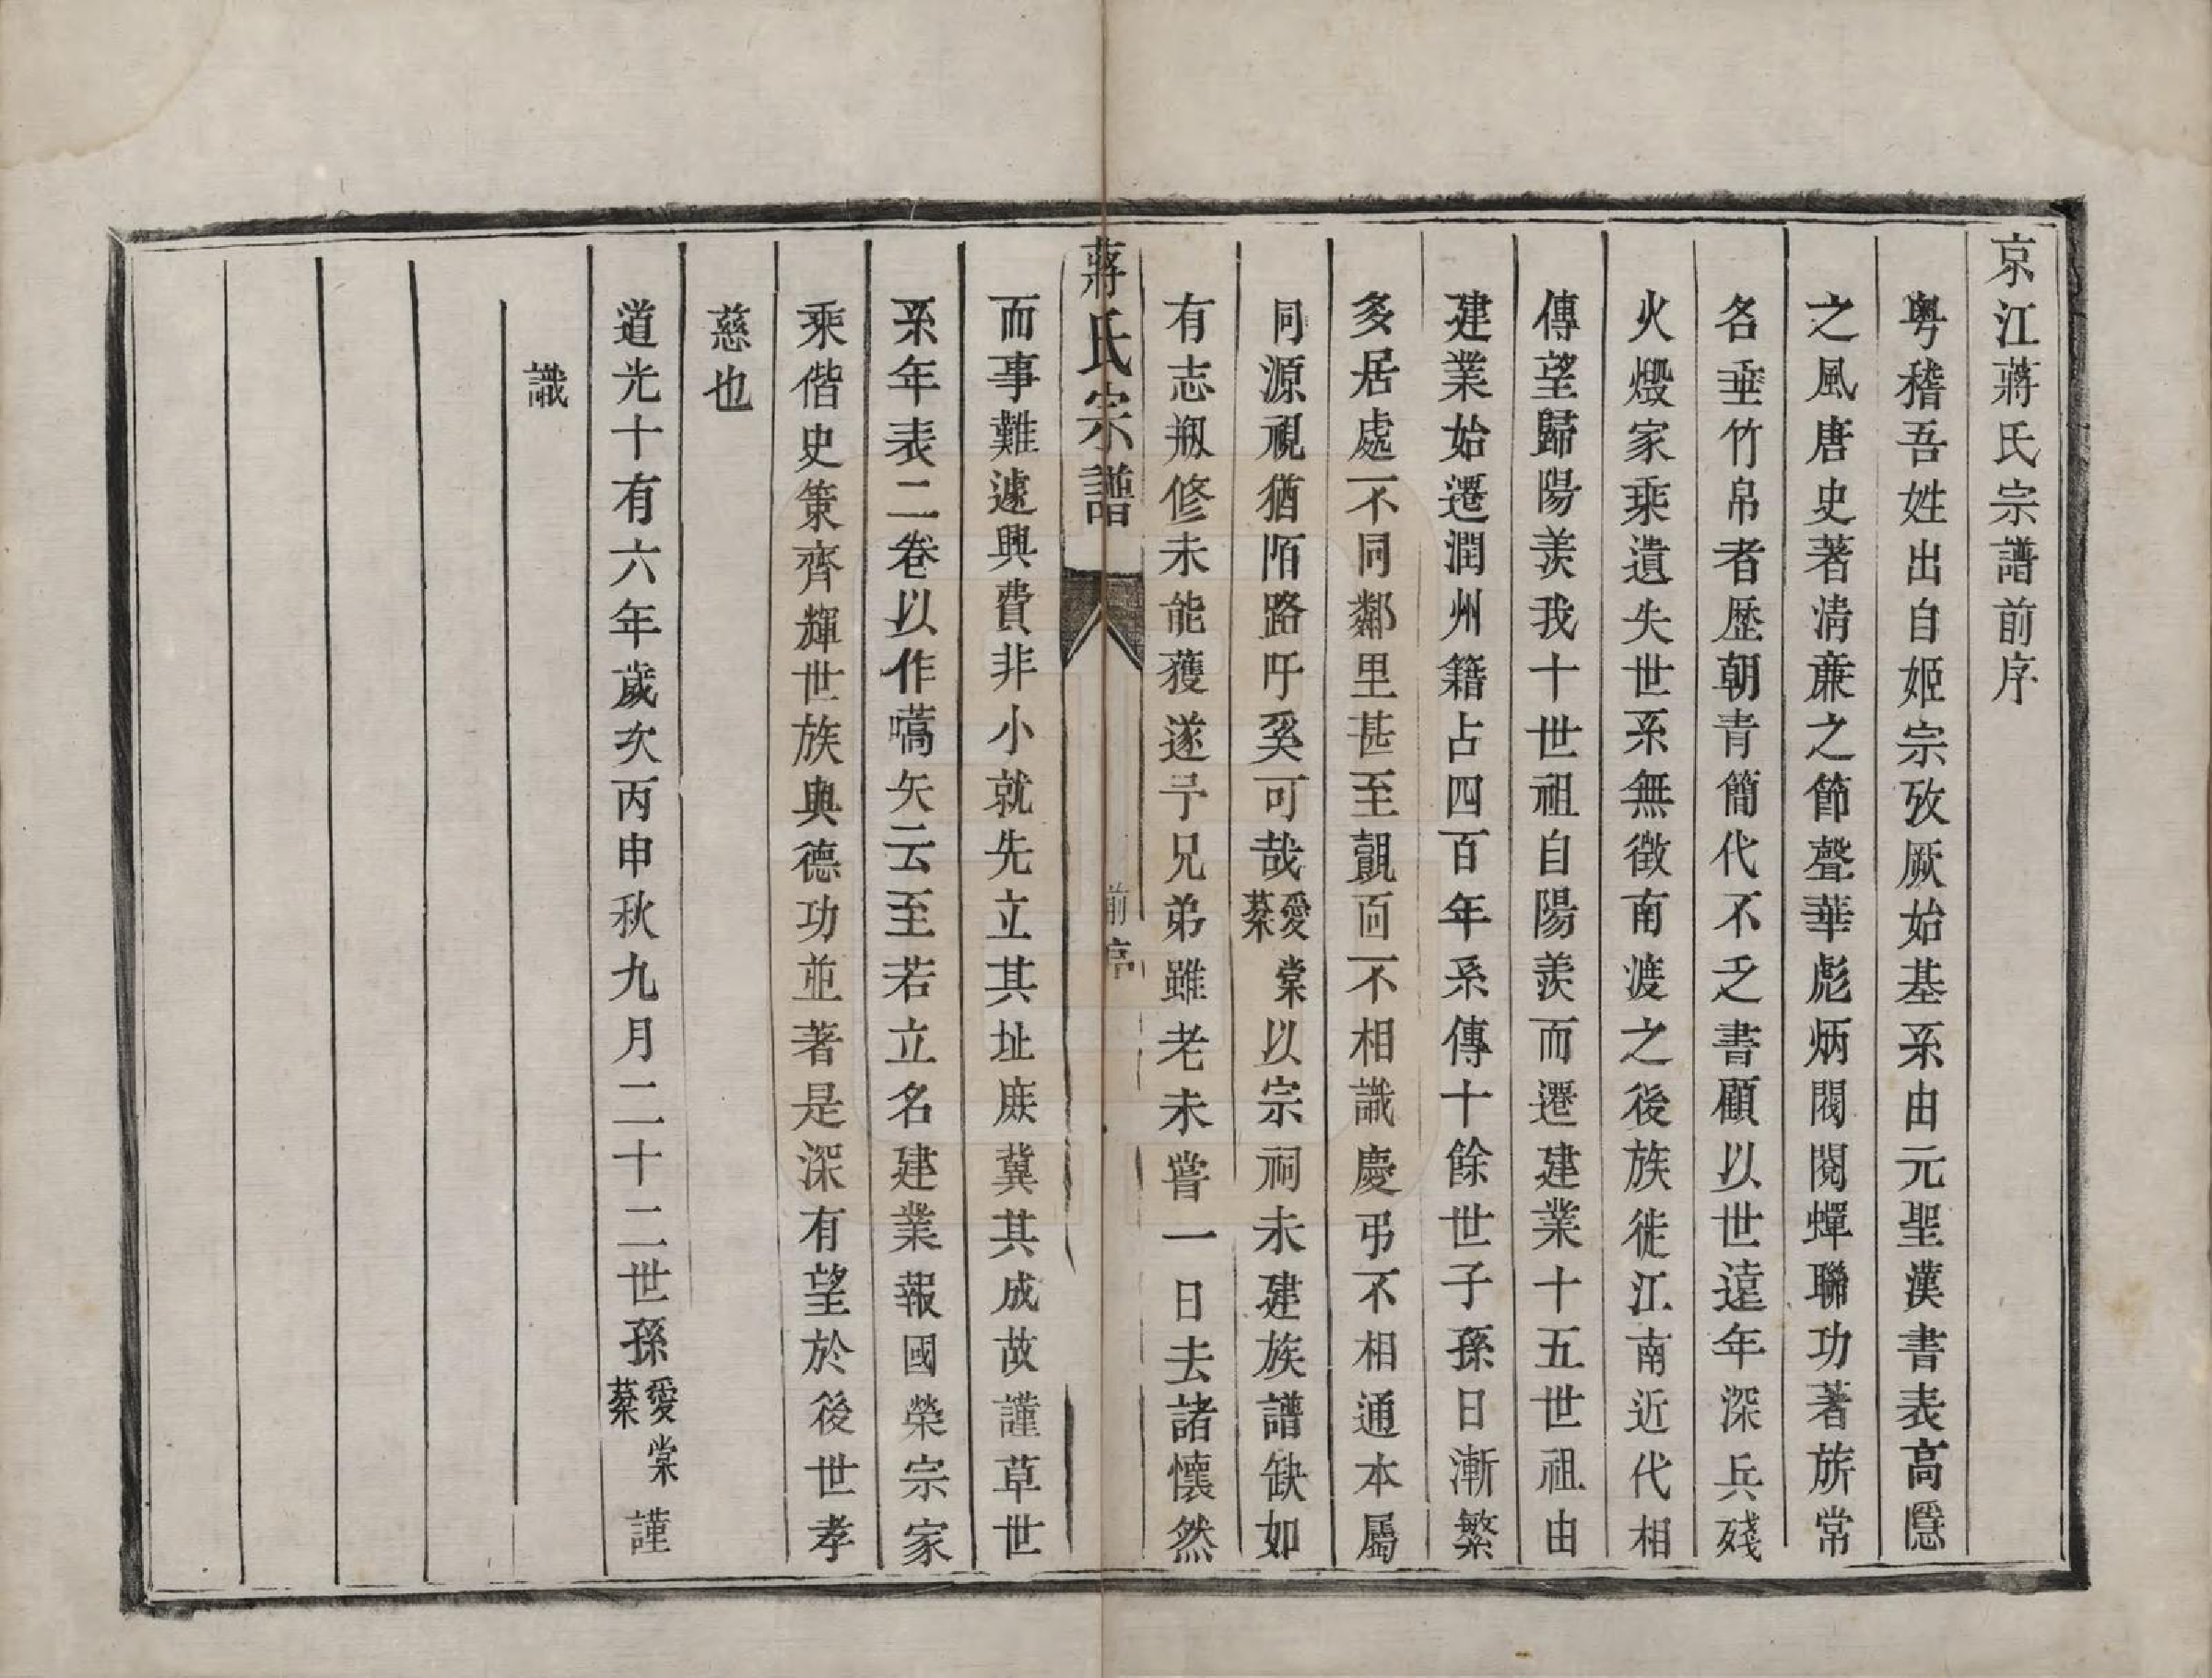 京江蔣氏宗譜前序
粤稽吾姓出自姬宗攷厥始基系由元聖漢書表高隱
之風唐史著清廉之節聲華彪炳閥閱蟬聯功著旂常
名垂竹帛者歷朝青簡代不乏書顧以世遠年深兵殘
火燬家乘遺失世系無徵南渡之後族徙江南近代相
傳望歸陽羨我十世祖自陽羨而遷建業十五世祖由
建業始遷潤州籍占四百年系傳十餘世子孫日漸繁
多居處不同鄰里甚至覿面不相識慶弔不相通本屬
同源視猶陌路吁奚可哉愛棠蔡以宗祠未建族譜缺如
有志剏修未能獲遂予兄弟雖老未嘗一日去諸懷然
蔣氏宗譜 前序
而事難遽興費非小就先立其址庶冀其成故謹草世
系年表二卷以作嚆矢云至若立名建業報國榮宗家
乘偕史策齊輝世族與德功並著是深有望於後世孝
慈也
道光十有六年歲次丙申秋九月二十二世孫愛棠蔡謹
識